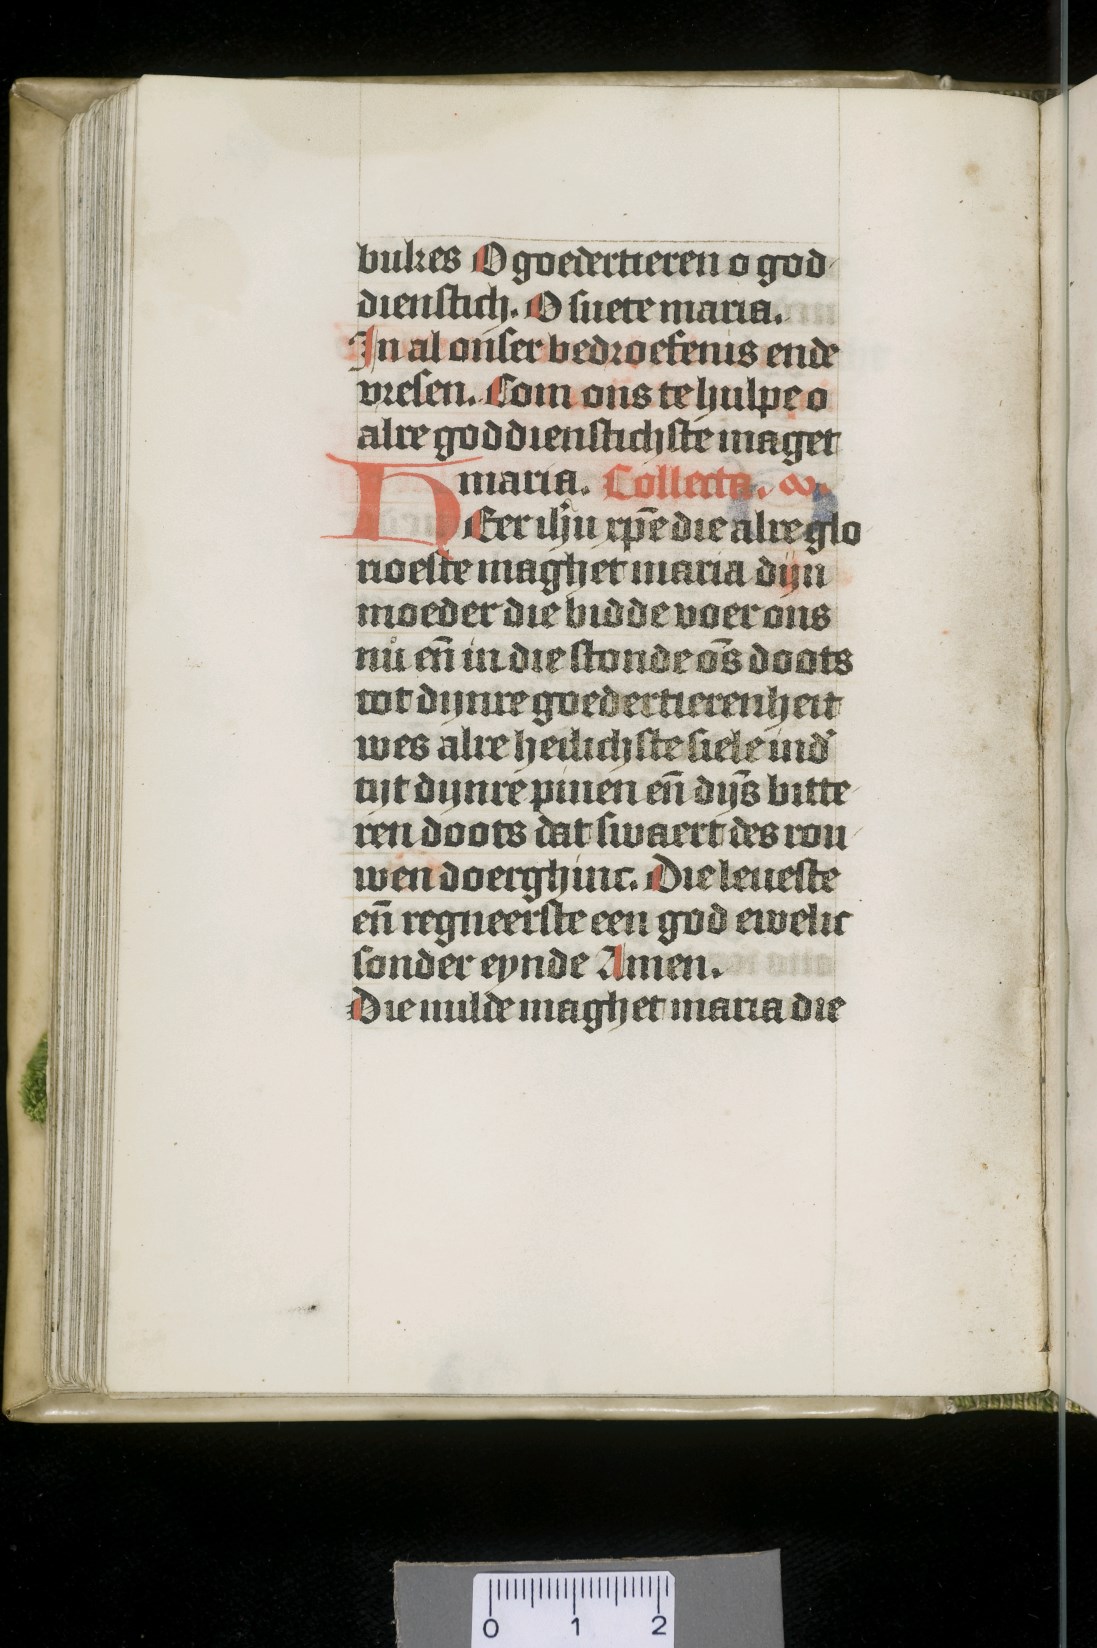 bukes O goedertieren o god
dienstich. O suete maria.
In al onser bedroefenis ende
vresen. Com ons te hulpe o
alre goddienstichste maget
maria. Collecta.
HEer ihu xpe die alre glo
rioeste maghet maria dijn
moeder die bidde voer ons
nu en̄ in die stonde ōs doots
tot dijnre goedertierenheit
wes alre heilichste siele ind'
tijt dijnre pinen en̄ dijs̄ bitte
ren doots dat swaert des rou
wen doerghinc. Die leueste
en̄ regneerste een god ewelic
sonder eynde Amen.
Die milde maghet maria die
0 1 2